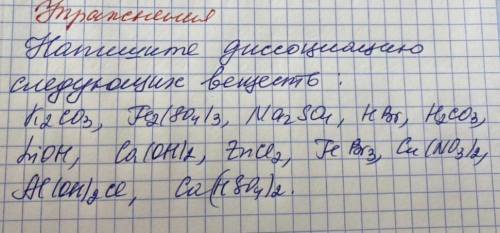 Упражнения
Напишите диссоциацию
следующих веществ:
K2CO3, Fe2(SO4)3, Na2SO4, HBr, H2CO3,
LiOH, Ca(OH)2, ZnCl2, FeBr3, Cu(NO3)2,
Al(OH)2Cl, Ca(HSO4)2.